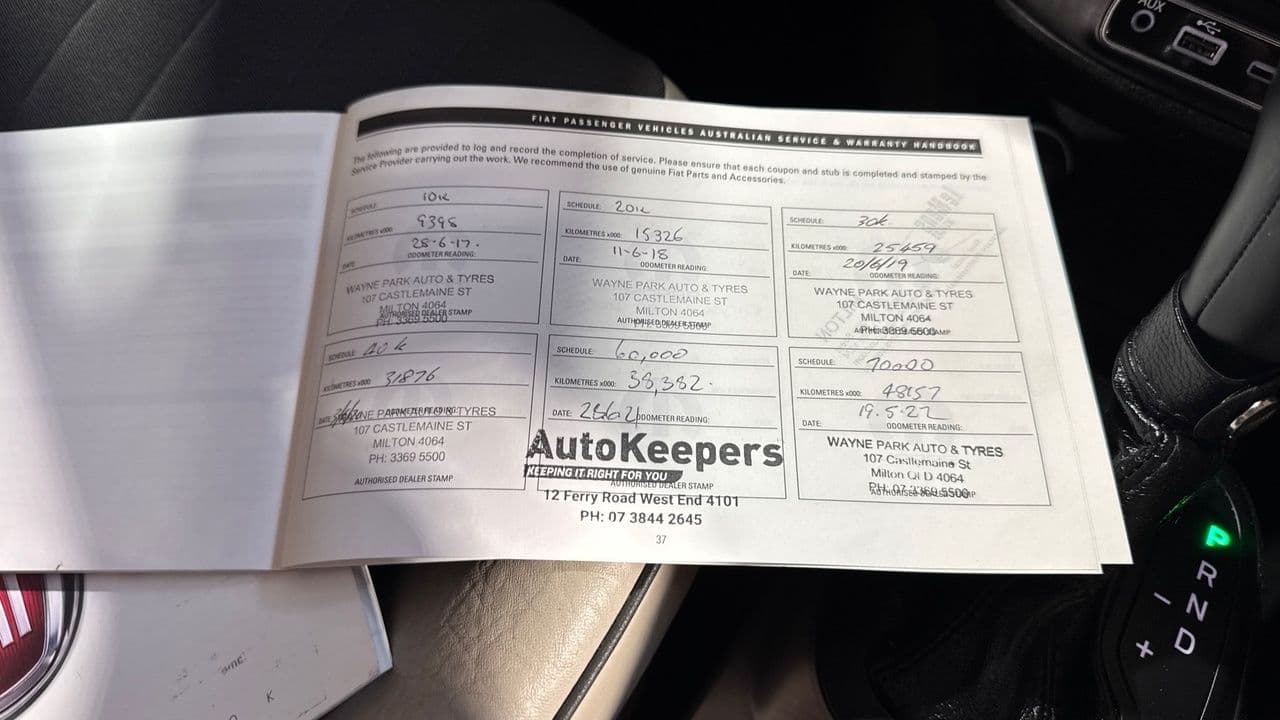 AUX
FIAT PASSENGER VEHICLES AUSTRALIAN SERVICE & WARRANTY HANDBOOK
The following are provided to log and record the completion of service. Please ensure that each coupon and stub is completed and stamped by the
Service Provider carrying out the work. We recommend the use of genuine Fiat Parts and Accessories.
SCHEDULE: 10k
KILOMETRES x000: 9395
28-6-17.
DATE: ODOMETER READING:
WAYNE PARK AUTO & TYRES
107 CASTLEMAINE ST
MILTON 4064
AUTHORISED DEALER STAMP
PH: 3369 5500
SCHEDULE: 20k
KILOMETRES x000: 15326
11-6-18
DATE: ODOMETER READING:
WAYNE PARK AUTO & TYRES
107 CASTLEMAINE ST
MILTON 4064
AUTHORISED DEALER STAMP
PH: 3369 5500
SCHEDULE: 30k
KILOMETRES x000: 25459
20/6/19
DATE: ODOMETER READING:
WAYNE PARK AUTO & TYRES
107 CASTLEMAINE ST
MILTON 4064
AUTHORISED DEALER STAMP
PH: 3369 5500
SCHEDULE: 40k
KILOMETRES x000: 31876
DATE: ODOMETER READING:
WAYNE PARK AUTO & TYRES
107 CASTLEMAINE ST
MILTON 4064
PH: 3369 5500
AUTHORISED DEALER STAMP
SCHEDULE: 60,000
KILOMETRES x000: 38,382.
DATE: 28/6/21 ODOMETER READING:
AutoKeepers
KEEPING IT RIGHT FOR YOU
AUTHORISED DEALER STAMP
12 Ferry Road West End 4101
PH: 07 3844 2645
SCHEDULE: 70000
KILOMETRES x000: 48157
19.5.22
DATE: ODOMETER READING:
WAYNE PARK AUTO & TYRES
107 Castlemaine St
Milton QLD 4064
PH: 07 3369 5500
AUTHORISED DEALER STAMP
37
P
R
N
D
-
+